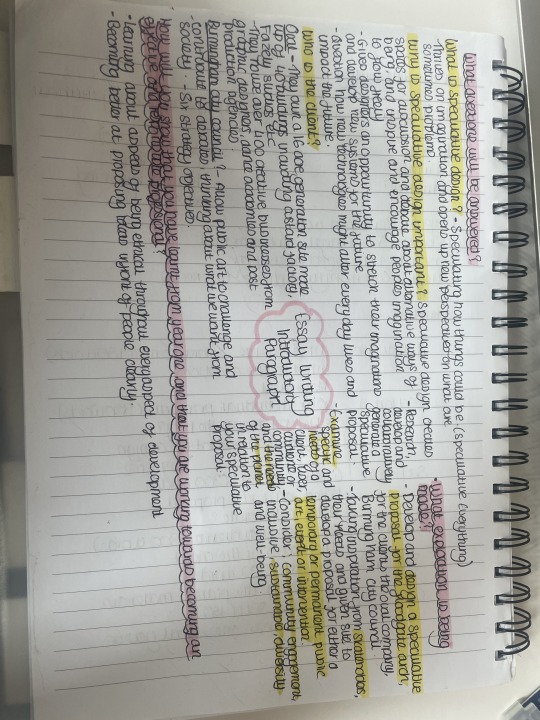 What questions will be answered?
What is speculative design? - Speculating how things could be. (speculative everything)
- Thrives on imagination and opens up new perspectives on what are
sometimes problems.
Why is speculative design important? Speculative design creates
spaces for discussion and debate about alternative ways of
being and inspire and encourage peoples imagination
to flow freely.
- Gives designers an opportunity to stretch their imaginations
and develop new systems for the future.
- Question how new technologies might alter everyday lives and
impact the future.
Who is the client?
Oval - They own a 16 acre
up of 40 buildings, including
Facery, we over 400 creative businesses from
- Tiny
graphic designers, dance academies and post
production agencies)
Birmingham city council? - Allow public art to challenge and
contribute to debates thinking about what we want from
society - Six strategy objectives.
How will you show that you have learnt from year one and that you are working towards becoming an
- Learning about aspects of being ethical throughout every aspect of development
- Becoming better at proposing ideas infront of people clearly.
Essay writing
Introductory
Paragraph
- What exploration is being
made?
- Develop and design a speculative
proposal for the
for the clients the oval company,
Birmingham city council
- Taking inspiration from
their needs and given site to
develop a proposal for either a
temporary or permanent public
art, event or intervention.
- Consider community engagement,
inclusive, sustainability, diversity
and well-being
- Research,
develop and
collaboratively
generate a
speculative
proposal.
- Examine
specific and
needs of a
client, user,
audience or
community
and the needs
of the planet
in relation to
your speculative
proposal